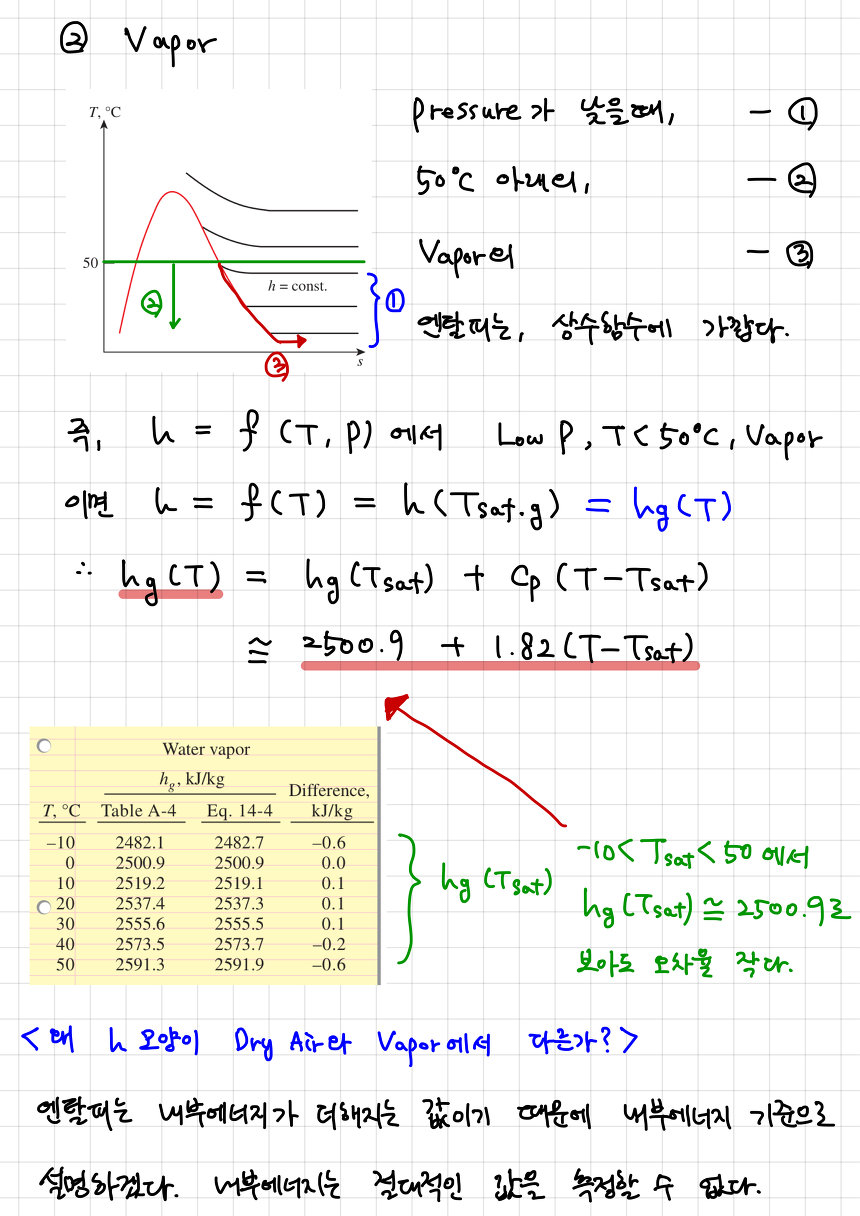 ② Vapor
T, °C
50
h = const.
s
②
①
③
pressure가 낮을때, — ①
50°C 아래의, — ②
Vapor의 — ③
엔탈피는, 상수함수에 가깝다.
즉, h = f (T, P) 에서 Low P, T < 50°C, Vapor
이면 h = f(T) = h(Tsat.g) = hg(T)
∴ hg(T) = hg(Tsat) + Cp (T-Tsat)
≅ 2500.9 + 1.82(T-Tsat)
Water vapor
hg, kJ/kg
Difference,
T, °C Table A-4 Eq. 14-4 kJ/kg
–10 2482.1 2482.7 –0.6
0 2500.9 2500.9 0.0
10 2519.2 2519.1 0.1
20 2537.4 2537.3 0.1
30 2555.6 2555.5 0.1
40 2573.5 2573.7 –0.2
50 2591.3 2591.9 –0.6
hg (Tsat)
-10< Tsat < 50 에서
hg(Tsat) ≅ 2500.9로
보아도 오차율 작다.
< 왜 h 모양이 Dry Air와 Vapor에서 다른가? >
엔탈피는 내부에너지가 더해지는 값이기 때문에 내부에너지 기준으로
설명하겠다. 내부에너지는 절대적인 값을 측정할 수 없다.